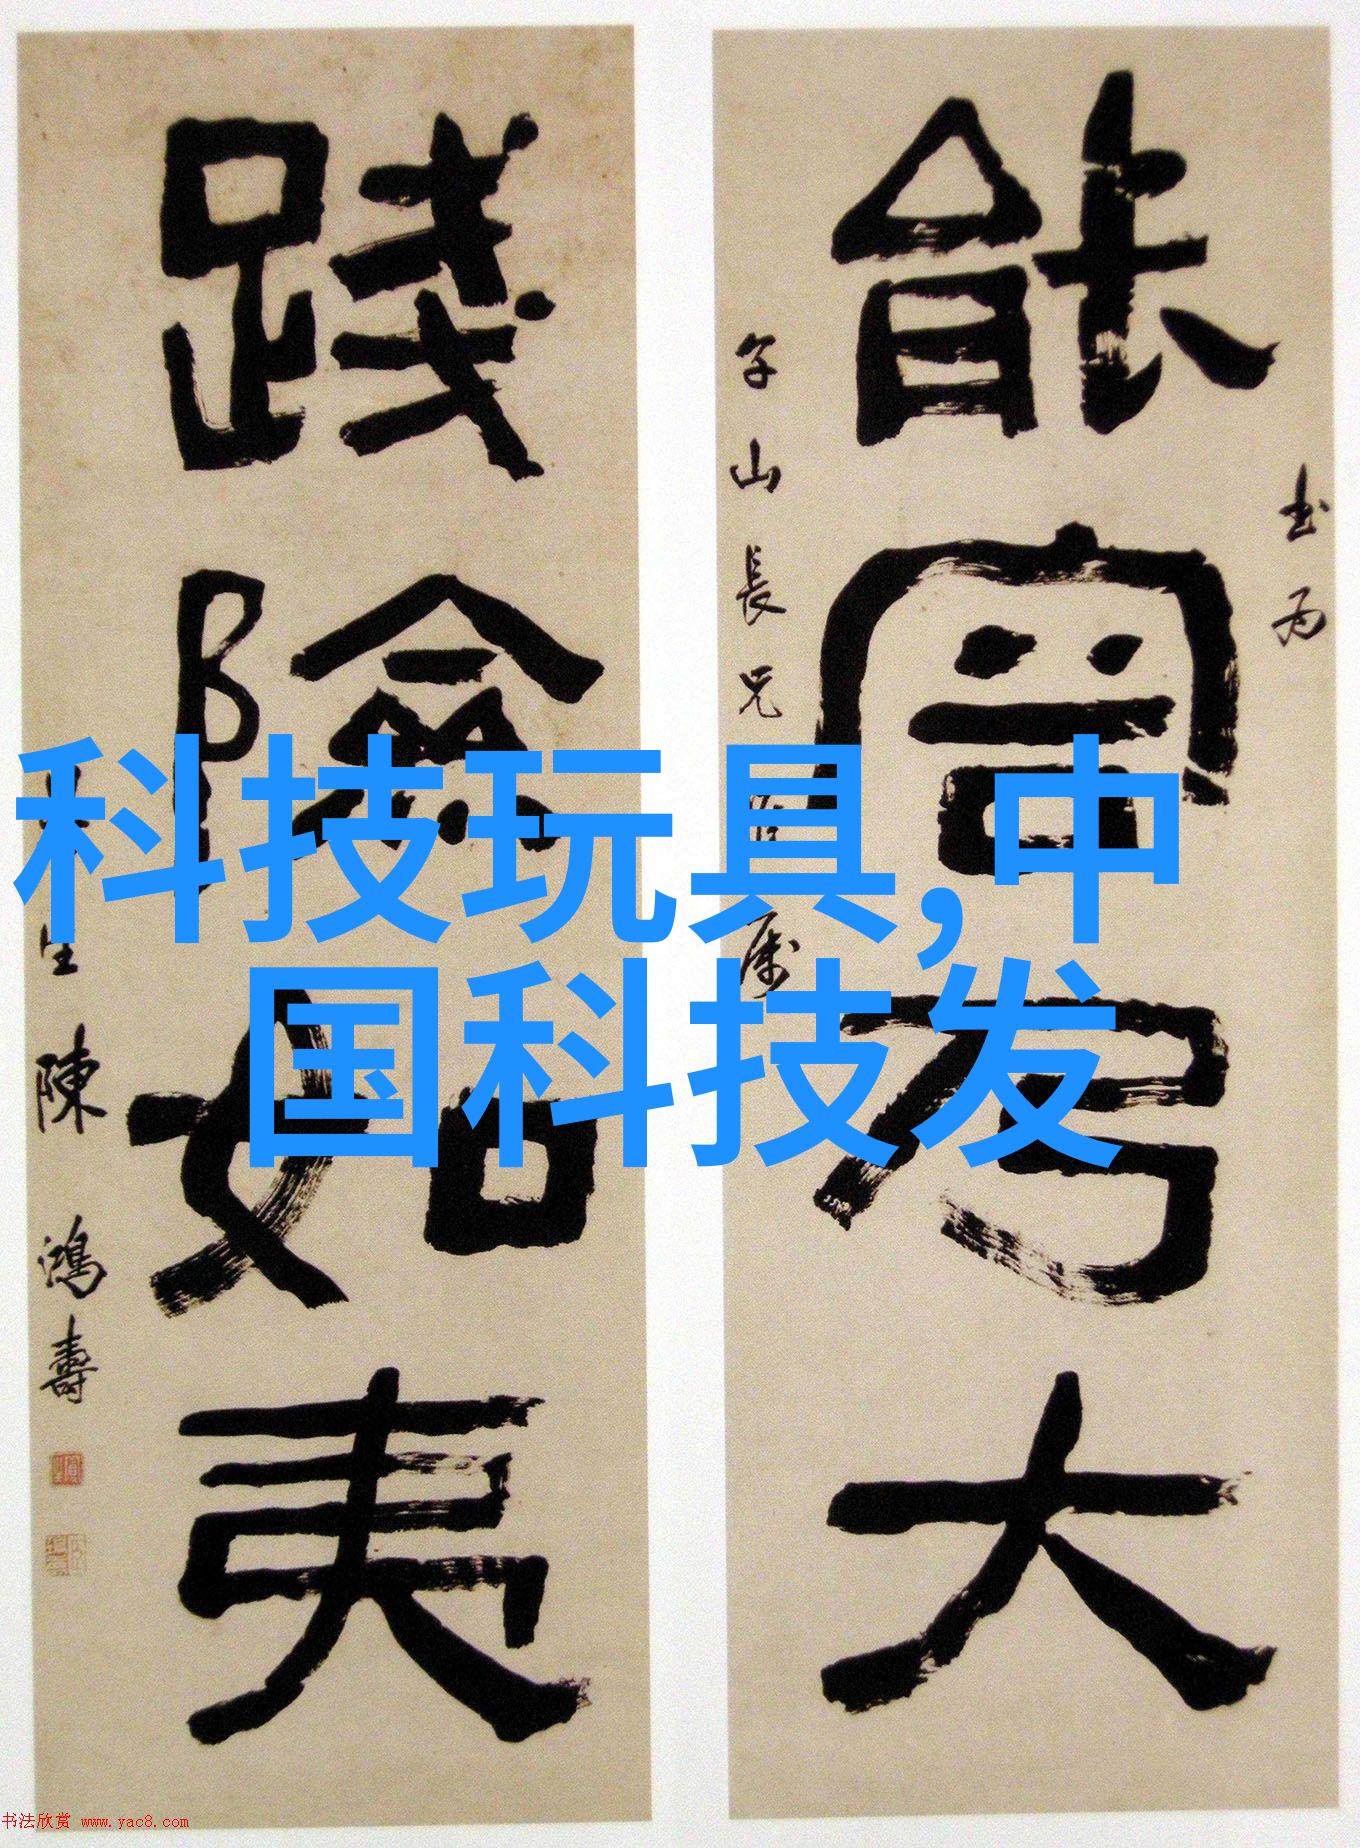 科技玩具,中
国科技发
書为
能容乃大
午山長兄
屬
踐險如夷
生陳鴻壽
书法欣赏 www.yac8.com